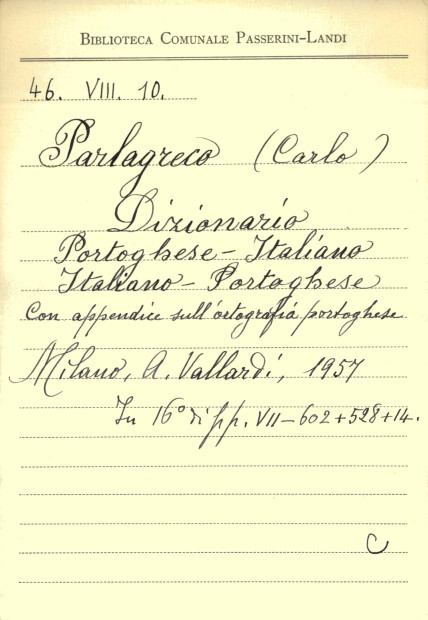 BIBLIOTECA COMUNALE PASSERINI-LANDI
46. VIII. 10.
Parlagreco (Carlo)
Dizionario
Portoghese - Italiano
Italiano - Portoghese
Con appendice sull'ortografia portoghese
Milano, A. Vallardi, 1957
In 16° di pp. VII - 602 + 528 + 14.
C